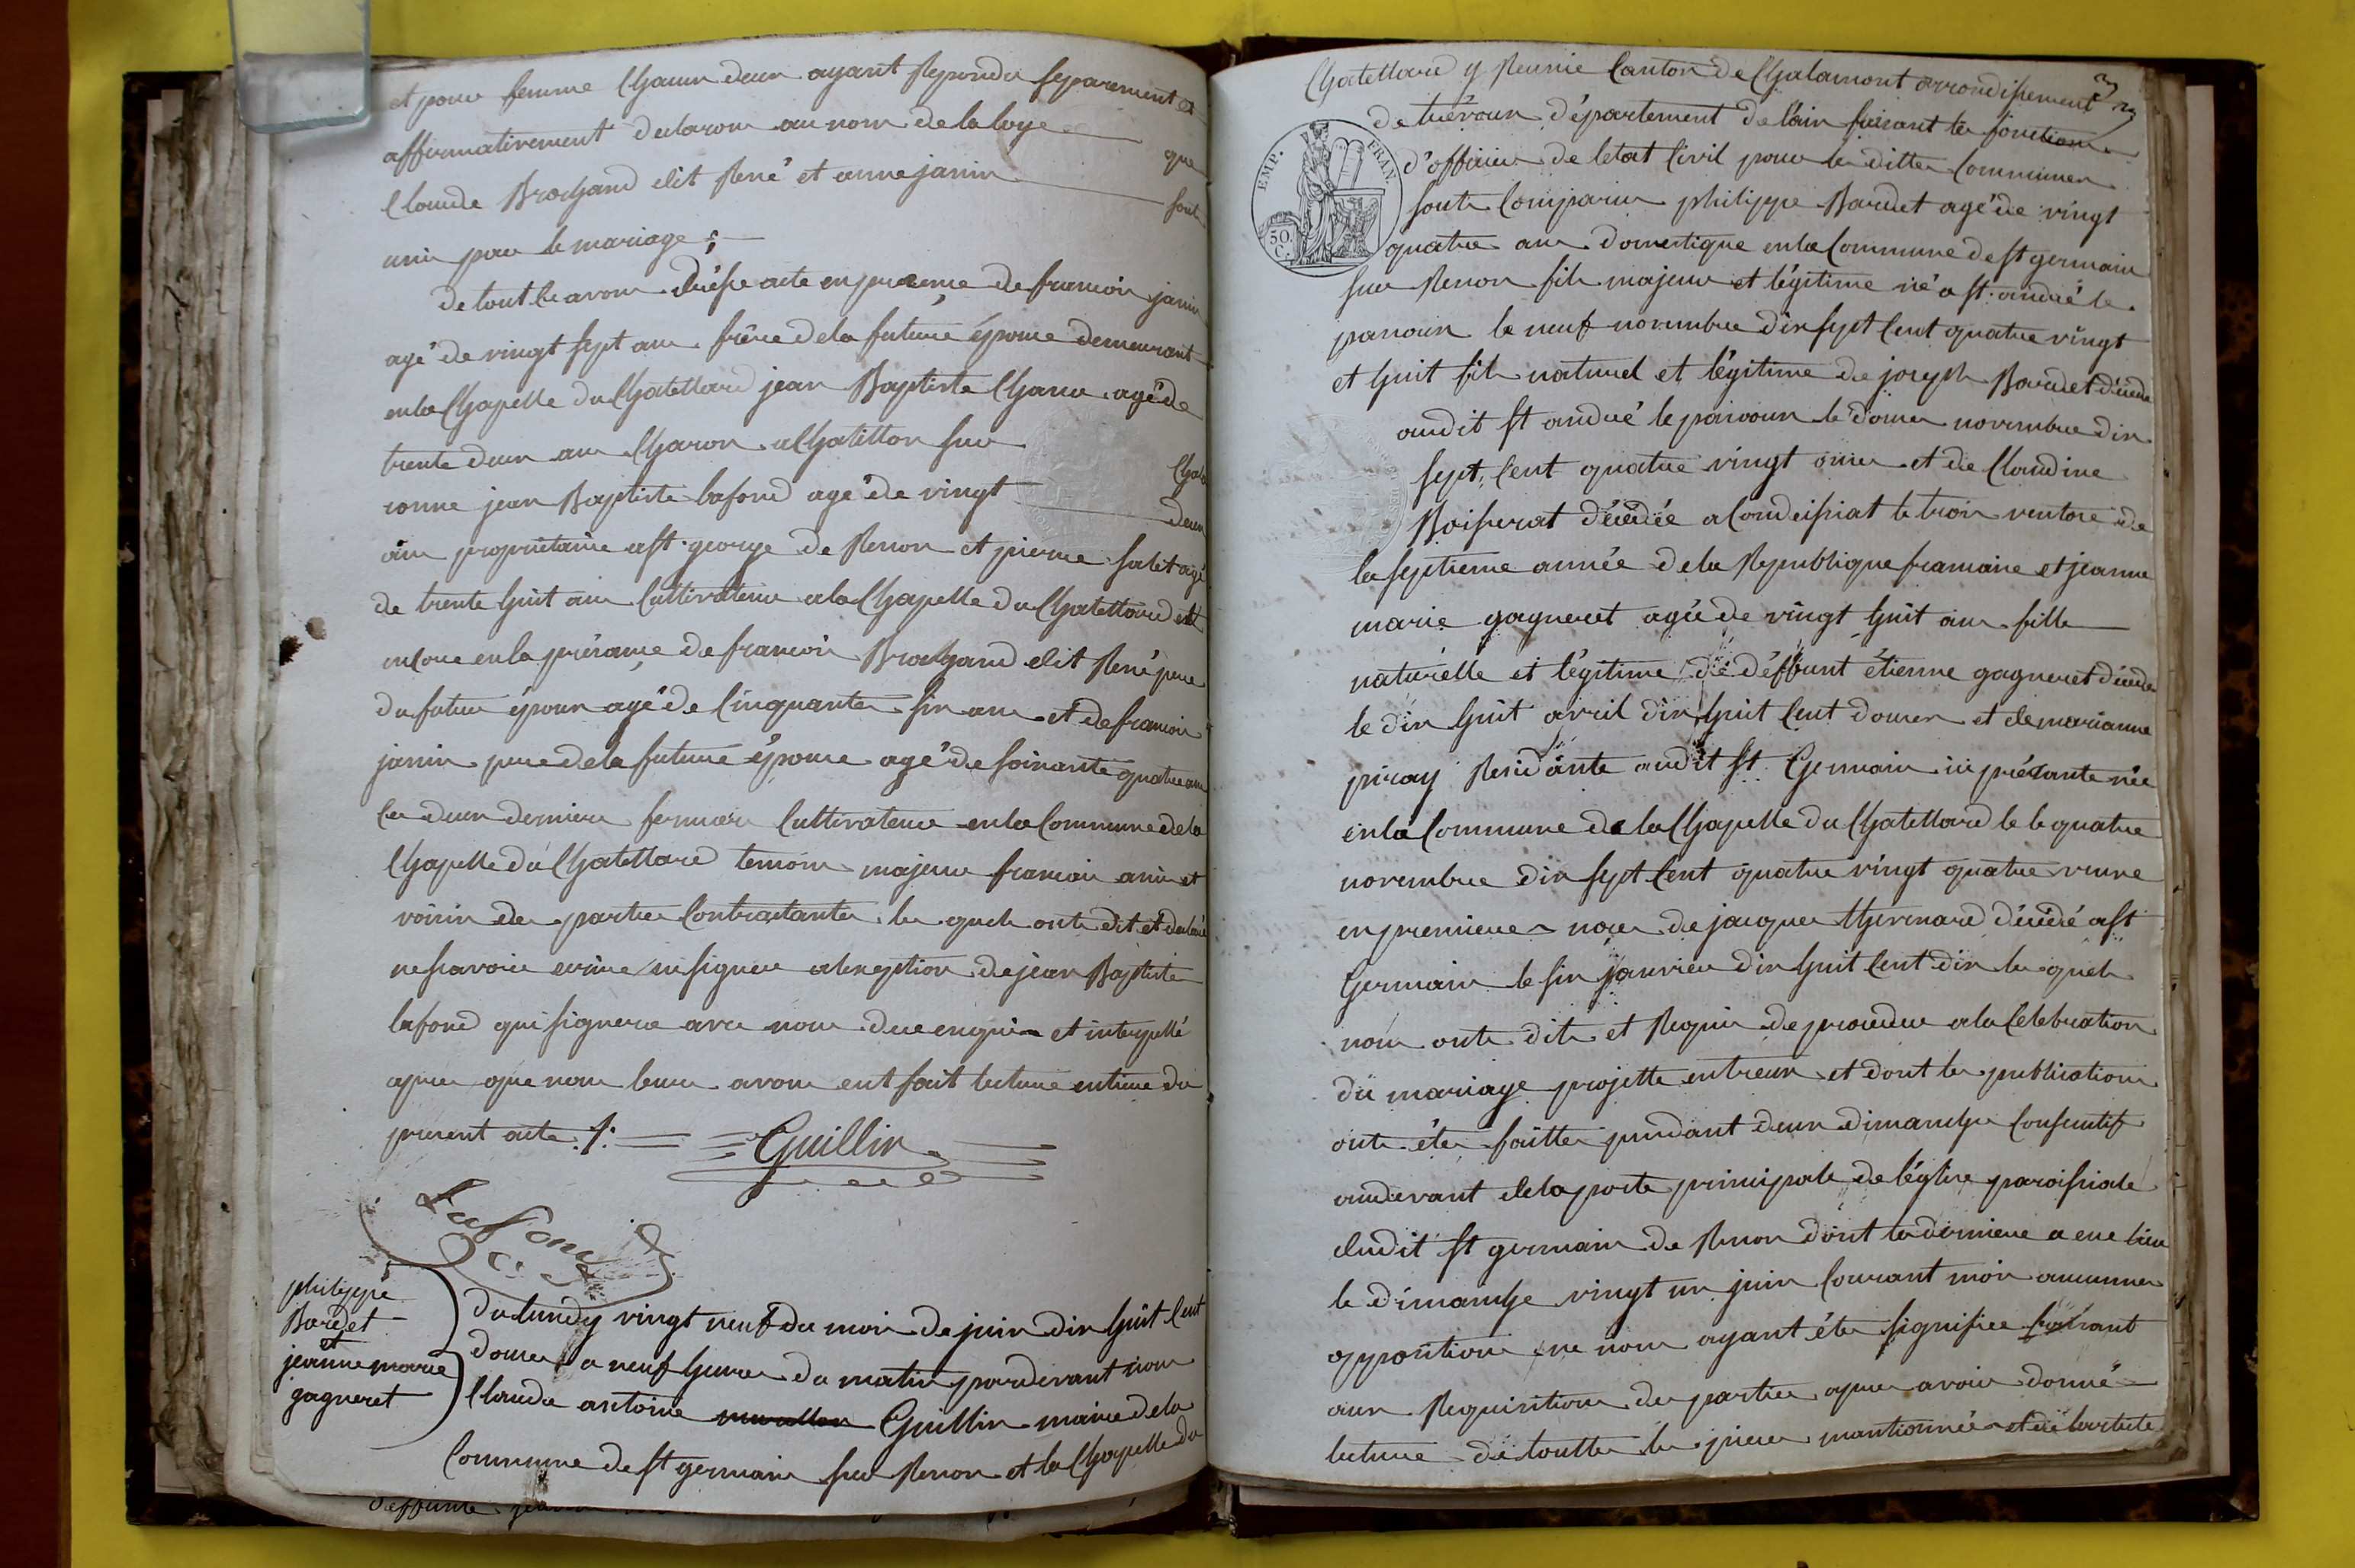 et pour femme Chacun deux ayant Repondu separement et
affirmativement declarons au nom de la loye que
Claude Brochand dit René et anne janin sont
unis pour le mariage ;
de tout le avons dréssé acte en presence de francois janin
agé de vingt sept ans frère de la future épouse demeurant
en la Chapelle du Chatellard jean Baptiste Chanu agé de
trente deux ans Charon a Chatillon sur Chala
ronne jean Baptiste lafond agé de vingt deux
ans propriétaire a st george de Renon et pierre salet agé
de trente huit ans Cultivateur a la Chapelle du Chatellard et
encore en la présance de francois Brochand dit René pere
du futur époux agé de Cinquante six ans et de francois
janin pere de la future épouse agé de soixante quatre ans
les deux derniers fermiers Cultivateur en la Commune de la
Chapelle du Chatellard temoins majeur francois amis et
voisin des parties Contractantes les quels onts dit et declaré
ne savoir ecrire ni signer a lexeption de jean Baptiste
lafond qui signera avec nous duc enquis et interpellé
apres que nous leurs avons ent fait lecture entiere du
present acte ./. Guillin
Lafond
philippe
Bardet
et
jeanne marie
gagneret
du lundy vingt neuf du mois de juin dix huit Cent
douze a neuf heures du matin pardevant nous
Claude antoine Guillin maire de la
Commune de st germain sur Renon et la Chapelle du
deffunte
3
Chatellard y Reunie Canton de Chalamont arrondissement
de trévoux département de l'ain faisant les fonctions
d'officier de letat Civil pour les dittes Communes
EMP. FRAN.
50. C.
sonts Comparus philippe Bardet agé de vingt
quatre ans domestique en la Commune de st germain
sur Renon fils majeur et légitime né a st. andré le
panoux le neuf novembre dix sept Cent quatre vingt
et huit fils naturel et légitime de joseph Bardet décédé
audit st andré le panoux le douze novembre dix
sept Cent quatre vingt onze et de Claudine
Boisserat décédée a Condeissiat le trois ventose de
la septieme année de la Republique francaise et jeanne
marie gagneret agée de vingt huit ans fille
naturelle et légitime de déffunt étienne gagneret décédé
le dix huit avril dix huit Cent douze et de marianne
piray Residante audit st Germain ici présante née
en la Commune de la Chapelle du Chatellard le le quatre
novembre dix sept Cent quatre vingt quatre veuve
en premieres noces de jacques décédé a st
Germain le six janvier dix huit Cent dix les quels
nous onts dits et Requis de proceder a la Celebration
du mariage projette entreux et dont les publications
onts étés faittes pendant deux dimanche Consecutif
audevant de la porte principale de l'église paroissiale
dudit st germain de Renon dont la derniere a eue lieu
le dimanche vingt un juin Courant mois aucunnes
opposition ne nous ayant étés signifiee faisant
aux Requisitions des parties apres avoir donné
lecture de touttes les pieces mantionnées